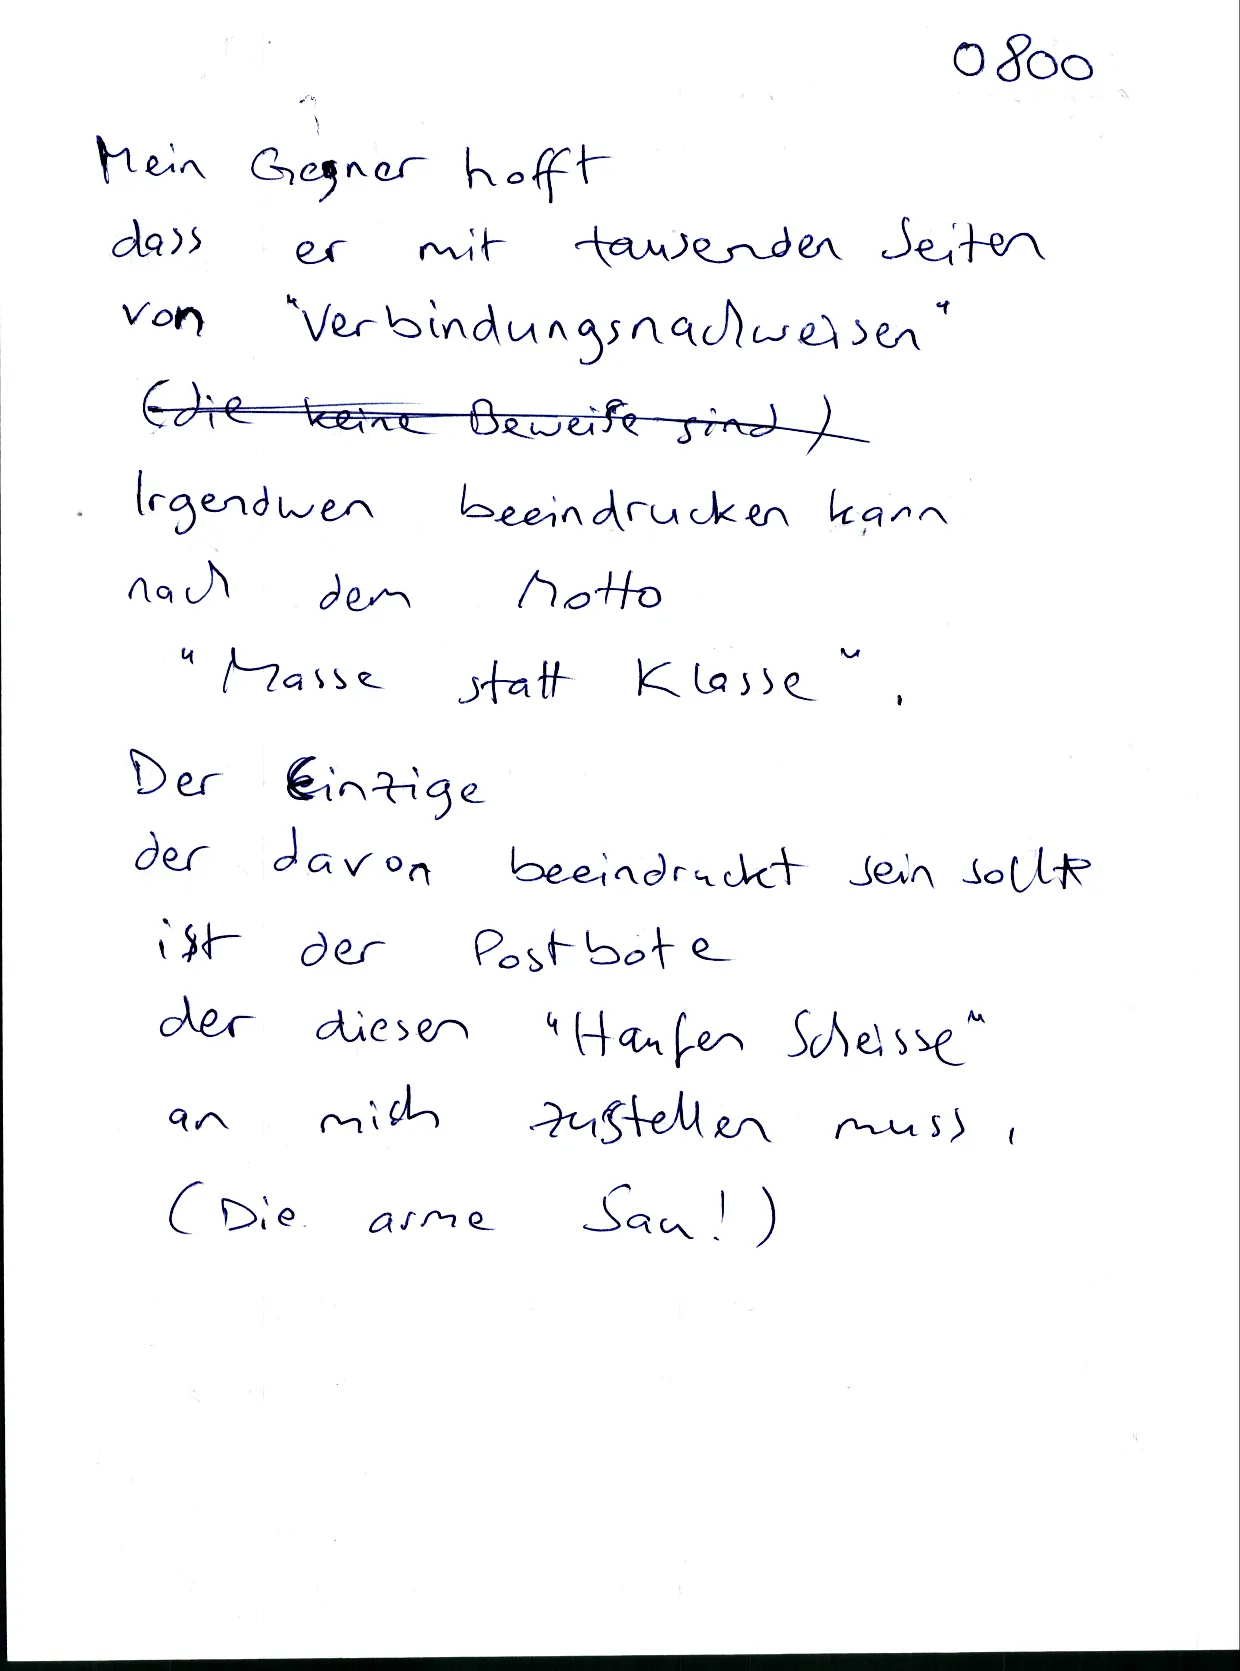 0800
Mein Gegner hofft
dass er mit tausenden Seiten
von "Verbindungsnachweisen"
(die keine Beweise sind)
Irgendwen beeindrucken kann
nach dem Motto
"Masse statt Klasse".
Der Einzige
der davon beeindruckt sein sollte
ist der Postbote
der diesen "Haufen Scheisse"
an mich zustellen muss.
(Die arme Sau!)